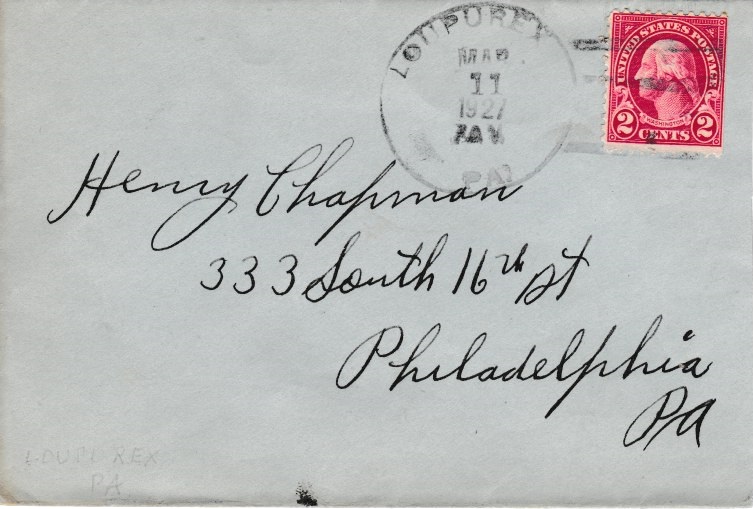 LOUPUREX
MAR
11
1927
PA
UNITED STATES POSTAGE
WASHINGTON
2 CENTS 2
Henry Chapman
333 South 16th St
Philadelphia
PA
LOUPUREX
PA